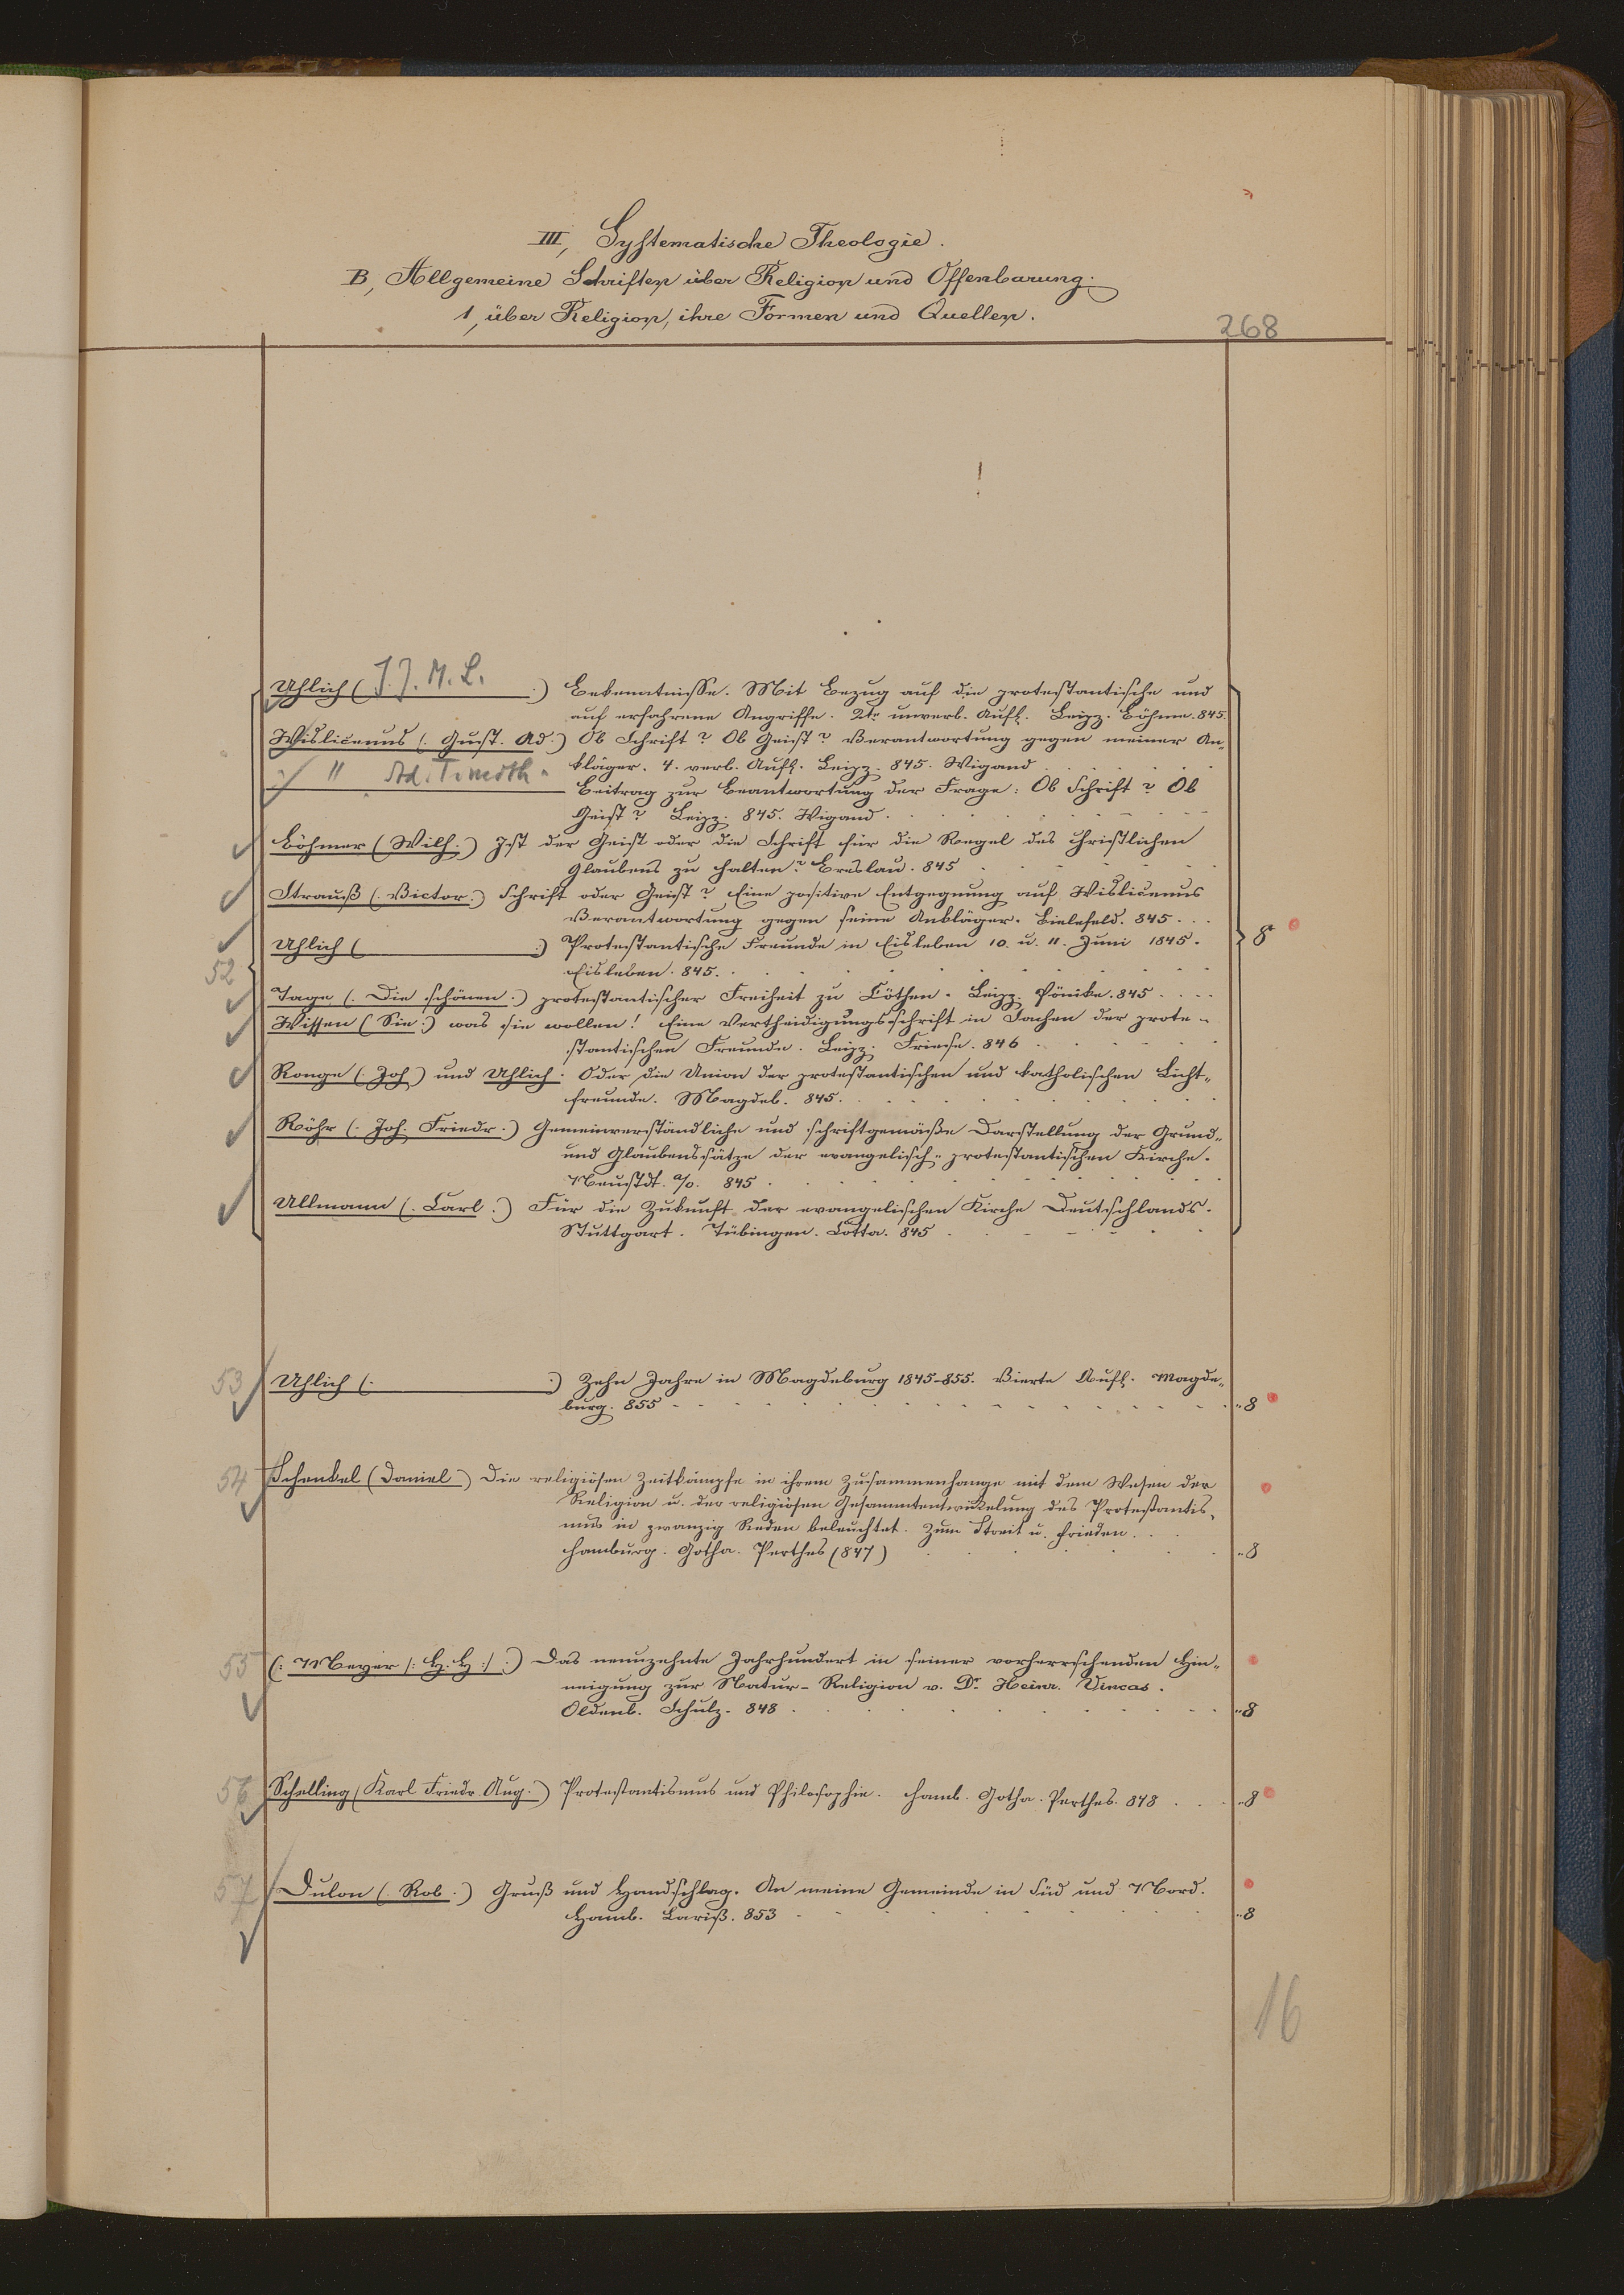 III, Systematische Theologie.
B, Allgemeine Schriften über Religion und Offenbarung.
1, über Religion, ihre Formen und Quellen.
268
Uhlich (: J. J. M. L. :) Bekenntnisse. Mit Bezug auf die protestantische und
auf erfahrene Angriffe. 2te unverb. Aufl. Leipz. Böhme. 845.
Wislicenus (: Gust. Ad :) Ob Schrift? Ob Geist? Verantwortung gegen meiner An-
kläger. 4. verb. Aufl. Leipz. 845. Wigand
" Ad. Timoth. Beitrag zur Beantwortung der Frage: Ob Schrift? Ob
Geist? Leipz. 845. Wigand.
Böhmer (: Wilh. :) Ist der Geist oder die Schrift für die Regel des christlichen
Glaubens zu halten? Breslau. 845
Strauß (: Victor :) Schrift oder Geist? Eine positive Entgegnung auf Wislicenus
Verantwortung gegen seine Ankläger. Bielefeld. 845.
8°
Uhlich (: :) Protestantische Freunde in Eisleben 10. u. 11. Juni 1845.
52 Eisleben. 845.
Tage (: Die schönen :) protestantischer Freiheit zu Cöthen. Leipz. Pönike. 845
Wissen (: Sie :) was sie wollen! Eine Vertheidigungsschrift in Sachen der prote-
stantischen Freunde. Leipz. Friese. 846
Ronge (: Joh :) und Uhlich. Oder die Union der protestantischen und katholischen Licht-
freunde. Magdeb. 845.
Röhr (: Joh. Friedr :) Gemeinverständliche und schriftgemäße Darstellung der Grund-
und Glaubenssätze der evangelisch-protestantischen Kirche.
Neustdt. a/o. 845
Ullmann (: Carl :) Für die Zukunft der evangelischen Kirche Deutschlands.
Stuttgart. Tübingen. Cotta. 845
53 Uhlich (: :) Zehn Jahre in Magdeburg 1845-855. Vierte Aufl. Magde-
burg. 855 "8
54 Schenkel (: Daniel :) Die religiösen Zeitkämpfe in ihrem Zusammenhange mit dem Wesen der
Religion u. der religiösen Gesammtentwickelung des Protestantis-
mus in zwanzig Reden beleuchtet. Zum Streit u. Frieden.
Hamburg. Gotha. Perthes (847) "8
55 (: Meyer /: H. H :/ :) Das neunzehnte Jahrhundert in seiner vorherrschenden Hin-
neigung zur Natur-Religion v. Dr. Heinr. Vincas.
Oldenb. Schulz. 848 "8
56 Schelling (: Karl Friedr. Aug. :) Protestantismus und Philosophie. Hamb. Gotha. Perthes. 848 "8
57 Dulon (: Rob. :) Gruß und Handschlag. An meine Gemeinde in Süd und Nord.
Hamb. 853 "8
16